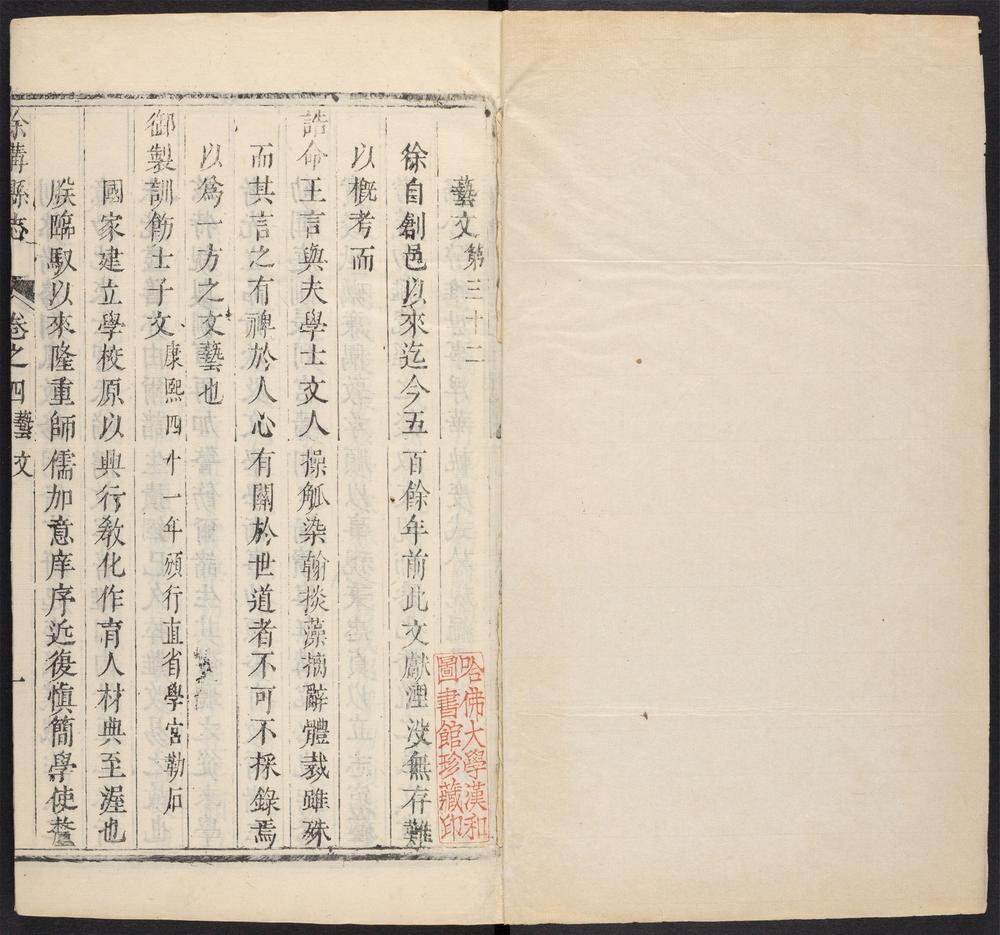 藝文第三十二
徐自創邑以來迄今五百餘年前此文獻湮沒無存難
以槪考而
誥命王言與夫學士文人操觚染翰掞藻摛辭體裁雖殊
而其言之有裨於人心有關於世道者不可不採錄焉
以爲一方之文藝也
御製訓飭士子文康熙四十一年頒行直省學宮勒石
國家建立學校原以興行敎化作育人材典至渥也
朕臨馭以來隆重師儒加意庠序近復慎簡學使釐
徐溝縣志
卷之四藝文
一
哈佛大學漢和
圖書館珍藏印